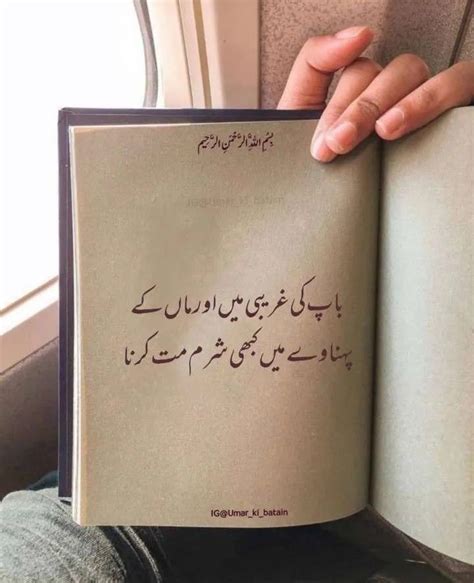 بِسْمِ اللّٰهِ الرَّحْمٰنِ الرَّحِيْمِ
باپ کی غریبی میں اور ماں کے
پہناوے میں کبھی شرم مت کرنا
IG@Umar_ki_batain